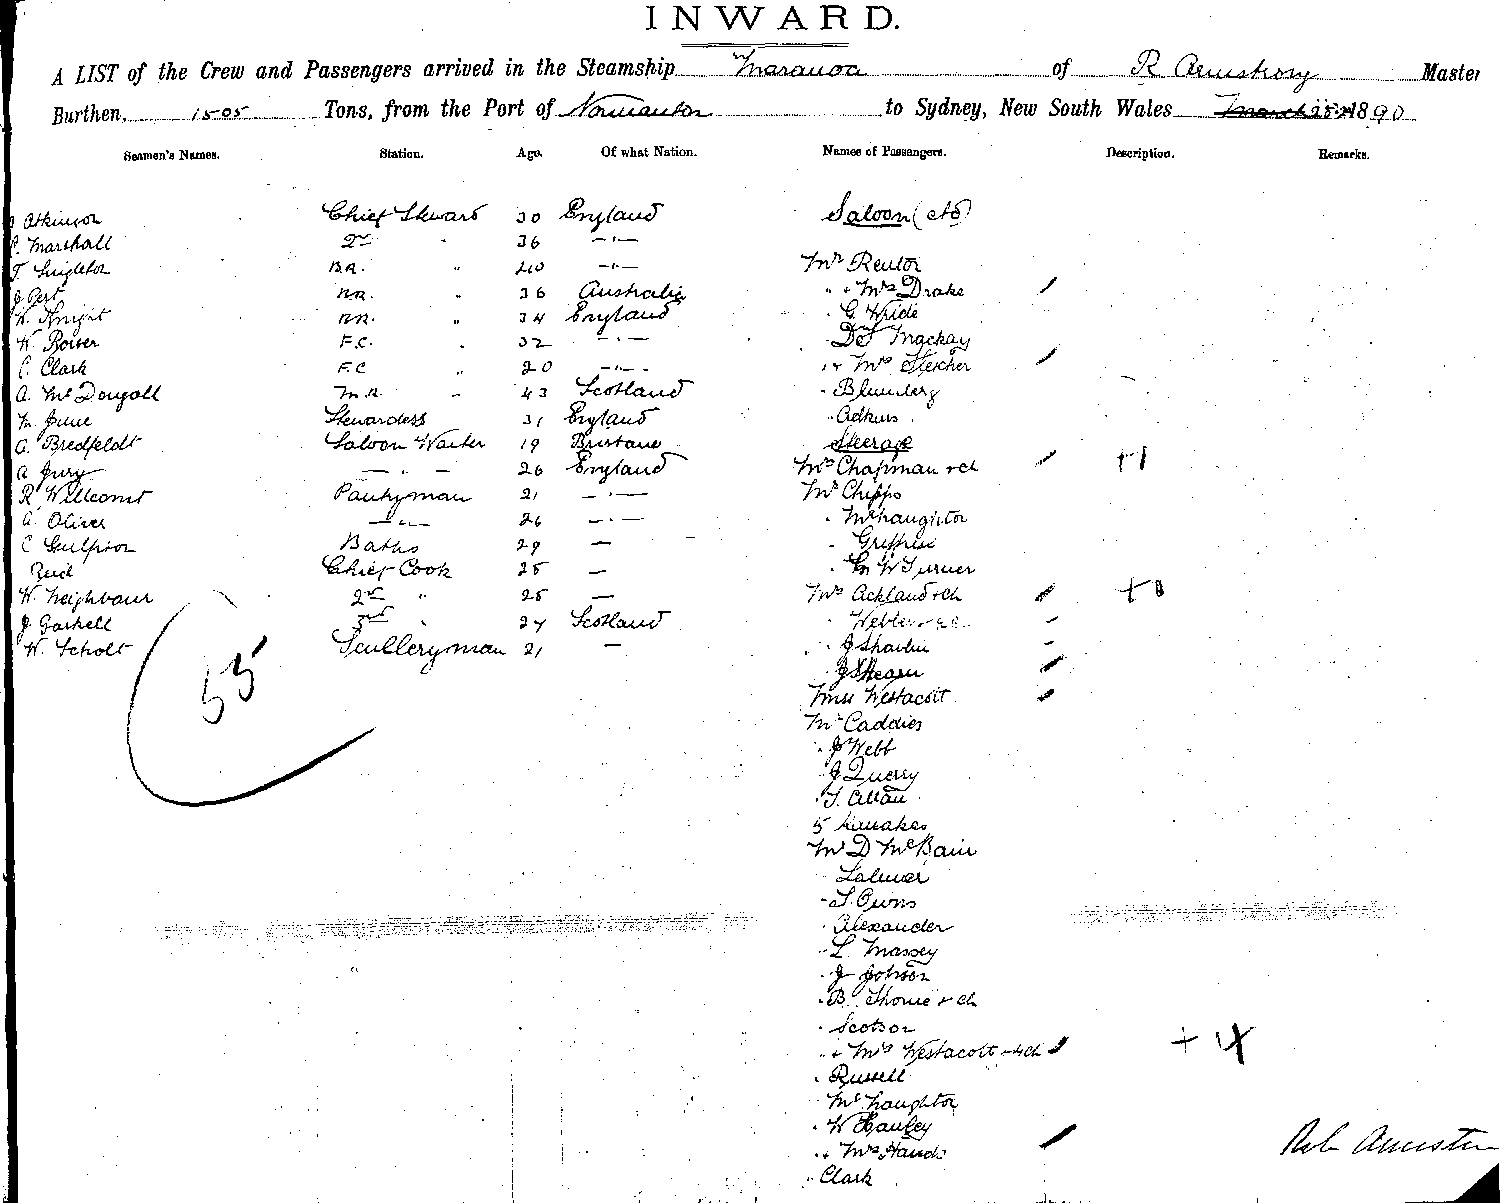 INWARD.
A LIST of the Crew and Passengers arrived in the Steamship Maranoa of R Armstrong Master
Burthen, 1505 Tons, from the Port of Normanton to Sydney, New South Wales March 1890
Seamen's Names. Station. Age. Of what Nation. Names of Passengers. Description. Remarks.
Atkinson Chief Steward 30 England Saloon (ctd)
Marshall 2nd " 36 — " —
T. Singleton B.R. " 20 — " — Mr Renton
J Pert " 36 Australia " + Mrs Drake
W. Knight " 34 England " G. Wride
W. F.C. " 32 — " — Mackay
C. Clark F.C " 20 — " — " + Mrs Fletcher
A. McDougall " 43 Scotland " Blumberg
M. June Stewardess 31 England " Adkins
A. Bredfeldt Saloon Waiter 19 Brisbane Steerage
A Jury — " — 26 England Mrs Chapman + ch +1
R. Willcomt Pantryman 21 — " — Mr Chipps
A. Oliver — " — 26 — " — " McNaughton
C Gulpson Baths 29 — "
Reid Chief Cook 25 — " W Turner
W. Neighbour 2nd " 25 — Mrs Ackland + ch
J Gaskell 3rd " 24 Scotland " Webber
W. Scholt Sculleryman 21 — " J Sharlin
" J Shearn
55 Miss Westacott
Mr Caddies
" J Webb
" J Querry
" T. Allan
5 Kanakas
Mr D McBain
" S. Owns
" Alexander
" L Massey
" J Johnson
" B. Thorne + ch
" Scotson
" + Mrs Westacott + 4 ch + 4
" Russell
" McNaughton
" W Hanley
" + Mrs Hands
" Clark